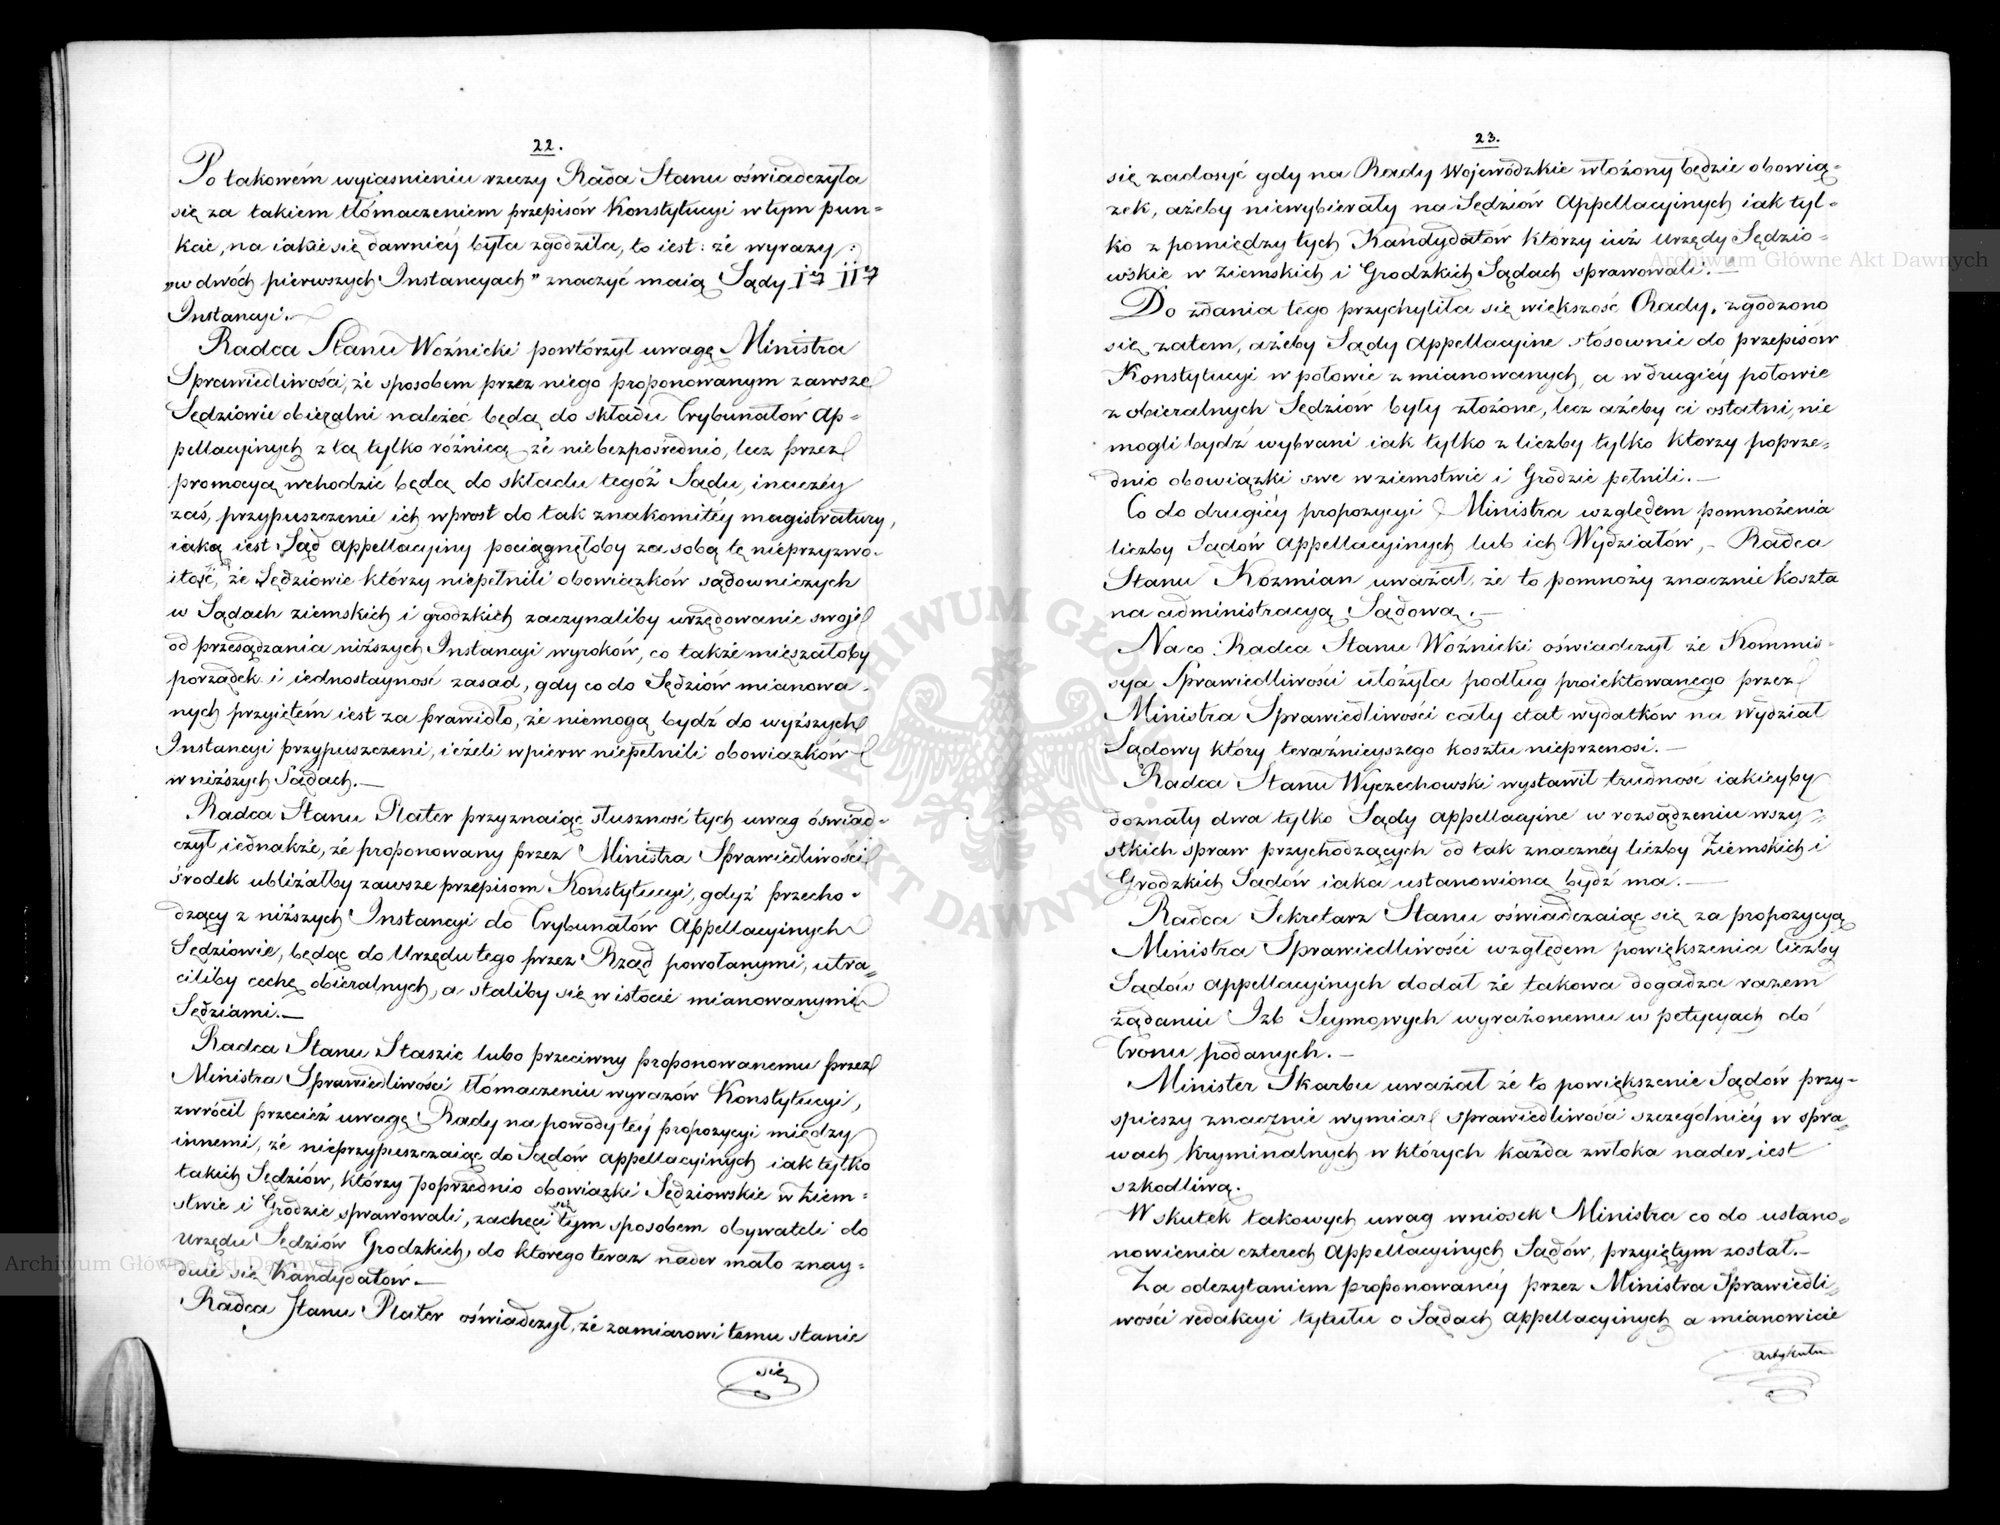 22.
Po takowém wyiasnieniu rzeczy Rada Stanu oświadczyła
się za takiem tłómaczeniem przepisów Konstytucyi w tym pun-
kcie, na iakie się dawniéy była zgodziła, to iest: że wyrazy:
„w dwóch pierwszych Instancyach” znaczyć maią Sądy Iéy IIéy
Instancyi.—
Radca Stanu Woźnicki powtórzył uwagę Ministra
Sprawiedliwości, że sposobem przez niego proponowanym zawsze
Sędziowie obieralni należeć będą do składu Trybunałów Ap-
pellacyinych z tą tylko różnicą że niebezpośrednio, lecz przez
promocyą wchodzić będą do składu tegóż Sądu, inaczéy
zaś, przypuszczenie ich wprost do tak znakomitéy magistratury,
iaką iest Sąd Appellacyiny pociągnęłoby za sobą tę nieprzyzwo-
itość, że Sędziowie którzy niepełnili obowiązków sądowniczych
w Sądach ziemskich i grodzkich zaczynaliby urzędowanie swoje
od przesądzania niższych Instancyi wyroków, co także mięszałoby
porządek i iednostayność zasad, gdy co do Sędziów mianowa-
nych przyiętém iest za prawidło, że niemogą bydź do wyższych
Instancyi przypuszczeni, ieżeli wpierw niepełnili obowiązków
w niższych Sądach.—
Radca Stanu Plater przyznaiąc słuszność tych uwag óświad-
czył iednakże, że proponowany przez Ministra Sprawiedliwości
środek ubliżałby zawsze przepisom Konstytucyi, gdyż przecho-
dzący z niższych Instancyi do Trybunałów Appellacyinych
Sędziowie, będąc do Urzędu tego przez Rząd powołanymi, utra-
ciliby cechę obieralnych, a staliby się w istocie mianowanymi
Sędziami.—
Radca Stanu Staszic lubo przeciwny proponowanemu przez
Ministra Sprawiedliwości tłómaczeniu wyrazów Konstytucyi,
zwrócił przecież uwagę Rady na powody téj propozycyi między
innemi, że nieprzypuszczaiąc do Sądów appellacyinych iak tylko
takich Sędziów, którzy poprzednio obowiązki Sędziowskie w Ziem-
stwie i Grodzie sprawowali, zachęci się tym sposobem obywateli do
Urzędu Sędziów Grodzkich, do którego teraz nader mało znay-
duie się Kandydatów.—
Radca Stanu Plater oświadczył, że zamiarowi temu stanie
się
23.
się zadosyć gdy na Rady Wojewódzkie włożony będzie obowią-
zek, ażeby niewybierały na Sędziów Appellacyinych iak tyl-
ko z pomiędzy tych Kandydatów którzy iuż Urzędy Sędzio-
wskie w Ziemskich i Grodzkich Sądach sprawowali.—
Do zdania tego przychyliła się większość Rady, zgodzono
się zatem, ażeby Sądy Appellacyine stósownie do przepisów
Konstytucyi w połowie z mianowanych, a w drugiéy połowie
z obieralnych Sędziów były złożone, lecz ażeby ci ostatni, nie
mogli bydź wybrani iak tylko z liczby tylko którzy poprze-
dnio obowiązki swe w ziemstwie i Grodzie pełnili.—
Co do drugiéy propozycyi Ministra względem pomnożenia
liczby Sądów Appellacyinych lub ich Wydziałów,— Radca
Stanu Kozmian uważał, że to pomnoży znacznie koszta
na administracyą Sądową.—
Na co Radca Stanu Woźnicki oświadczył że Kommis-
sya Sprawiedliwości ułożyła podług proiektowanego przez
Ministra Sprawiedliwości cały etat wydatków na Wydział
Sądowy który teraźnieyszego kosztu nieprzenosi.—
Radca Stanu Wyczechowski wystawił trudność iakieyby
doznały dwa tylko Sądy appellacyine w rozsądzeniu wszy-
stkich spraw przychodzących od tak znacznéy liczby Ziemskich i
Grodzkich Sądów iaka ustanowioną bydź ma.—
Radca Sekretarz Stanu oświadczaiąc się za propozycyą
Ministra Sprawiedliwości względem powiększenia liczby
Sądów appellacyinych dodał że takowa dogadza razem
żądaniu Izb Seymowych wyrażonemu w petycyach do
Tronu podanych.—
Minister Skarbu uważał że to powiększenie Sądów przy-
spieszy znacznie wymiar sprawiedliwości szczególniéy w spra-
wach kryminalnych w których każda zwłoka nader iest
szkodliwą.
W skutek takowych uwag wniosek Ministra co do ustano-
nowienia czterech Appellacyinych Sądów, przyiętym został.—
Za odczytaniem proponowanéy przez Ministra Sprawiedli-
wości redakcyi tytułu o Sądach appellacyinych a mianowicie
Artykułu
Archiwum Główne Akt Dawnych
Archiwum Główne Akt Dawnych
ARCHIWUM GŁÓWNE AKT DAWNYCH